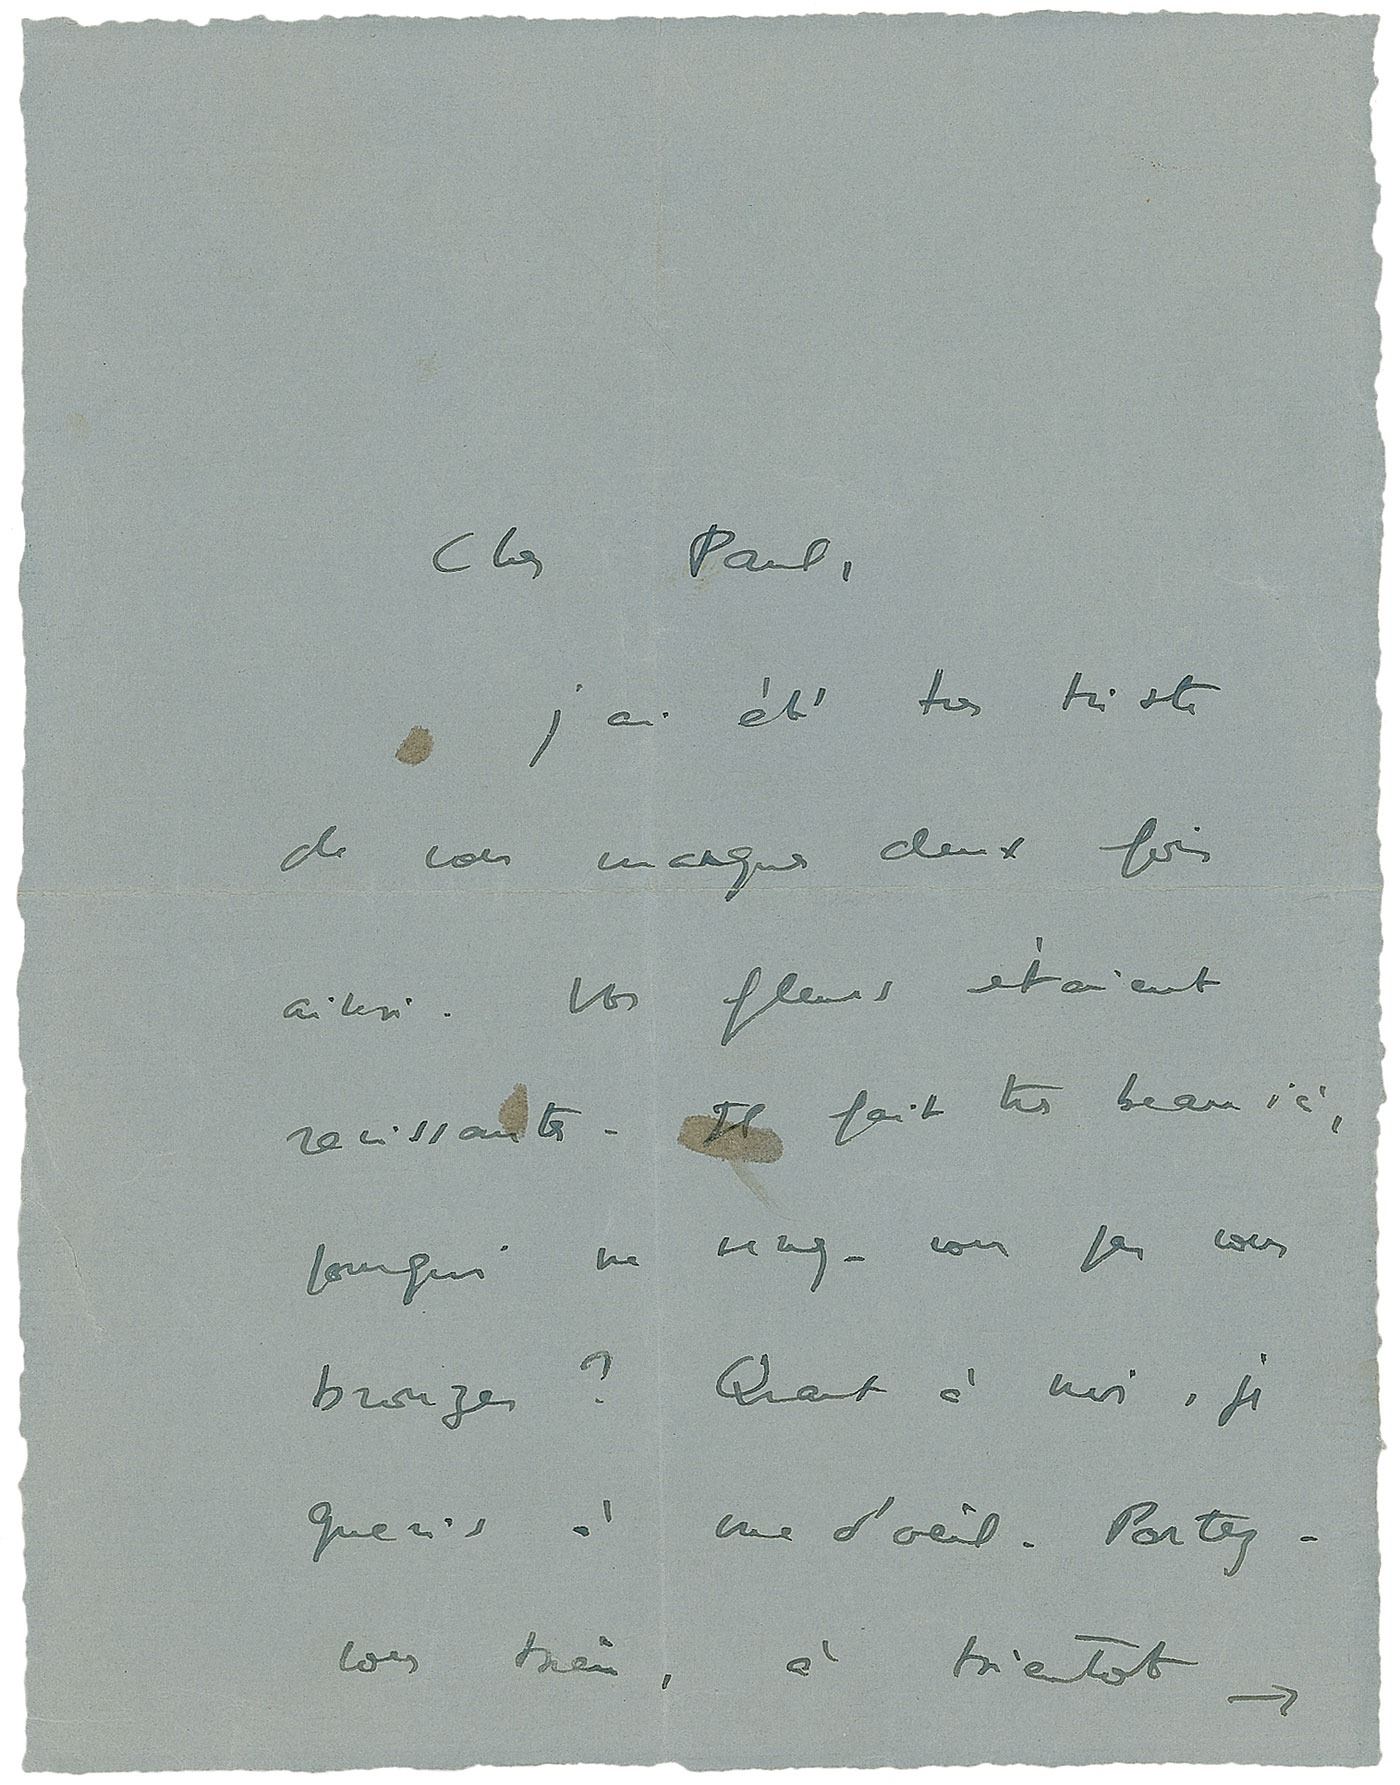 Cher Paul,
j'ai été très triste
de vous manquer deux fois
ainsi. Vos fleurs étaient
ravissantes. Il fait très beau ici,
pourquoi ne venez-vous pas vous
bronzer ? Quant à moi, je
guéris à vue d'oeil. Portez-
vous bien, à bientôt
→